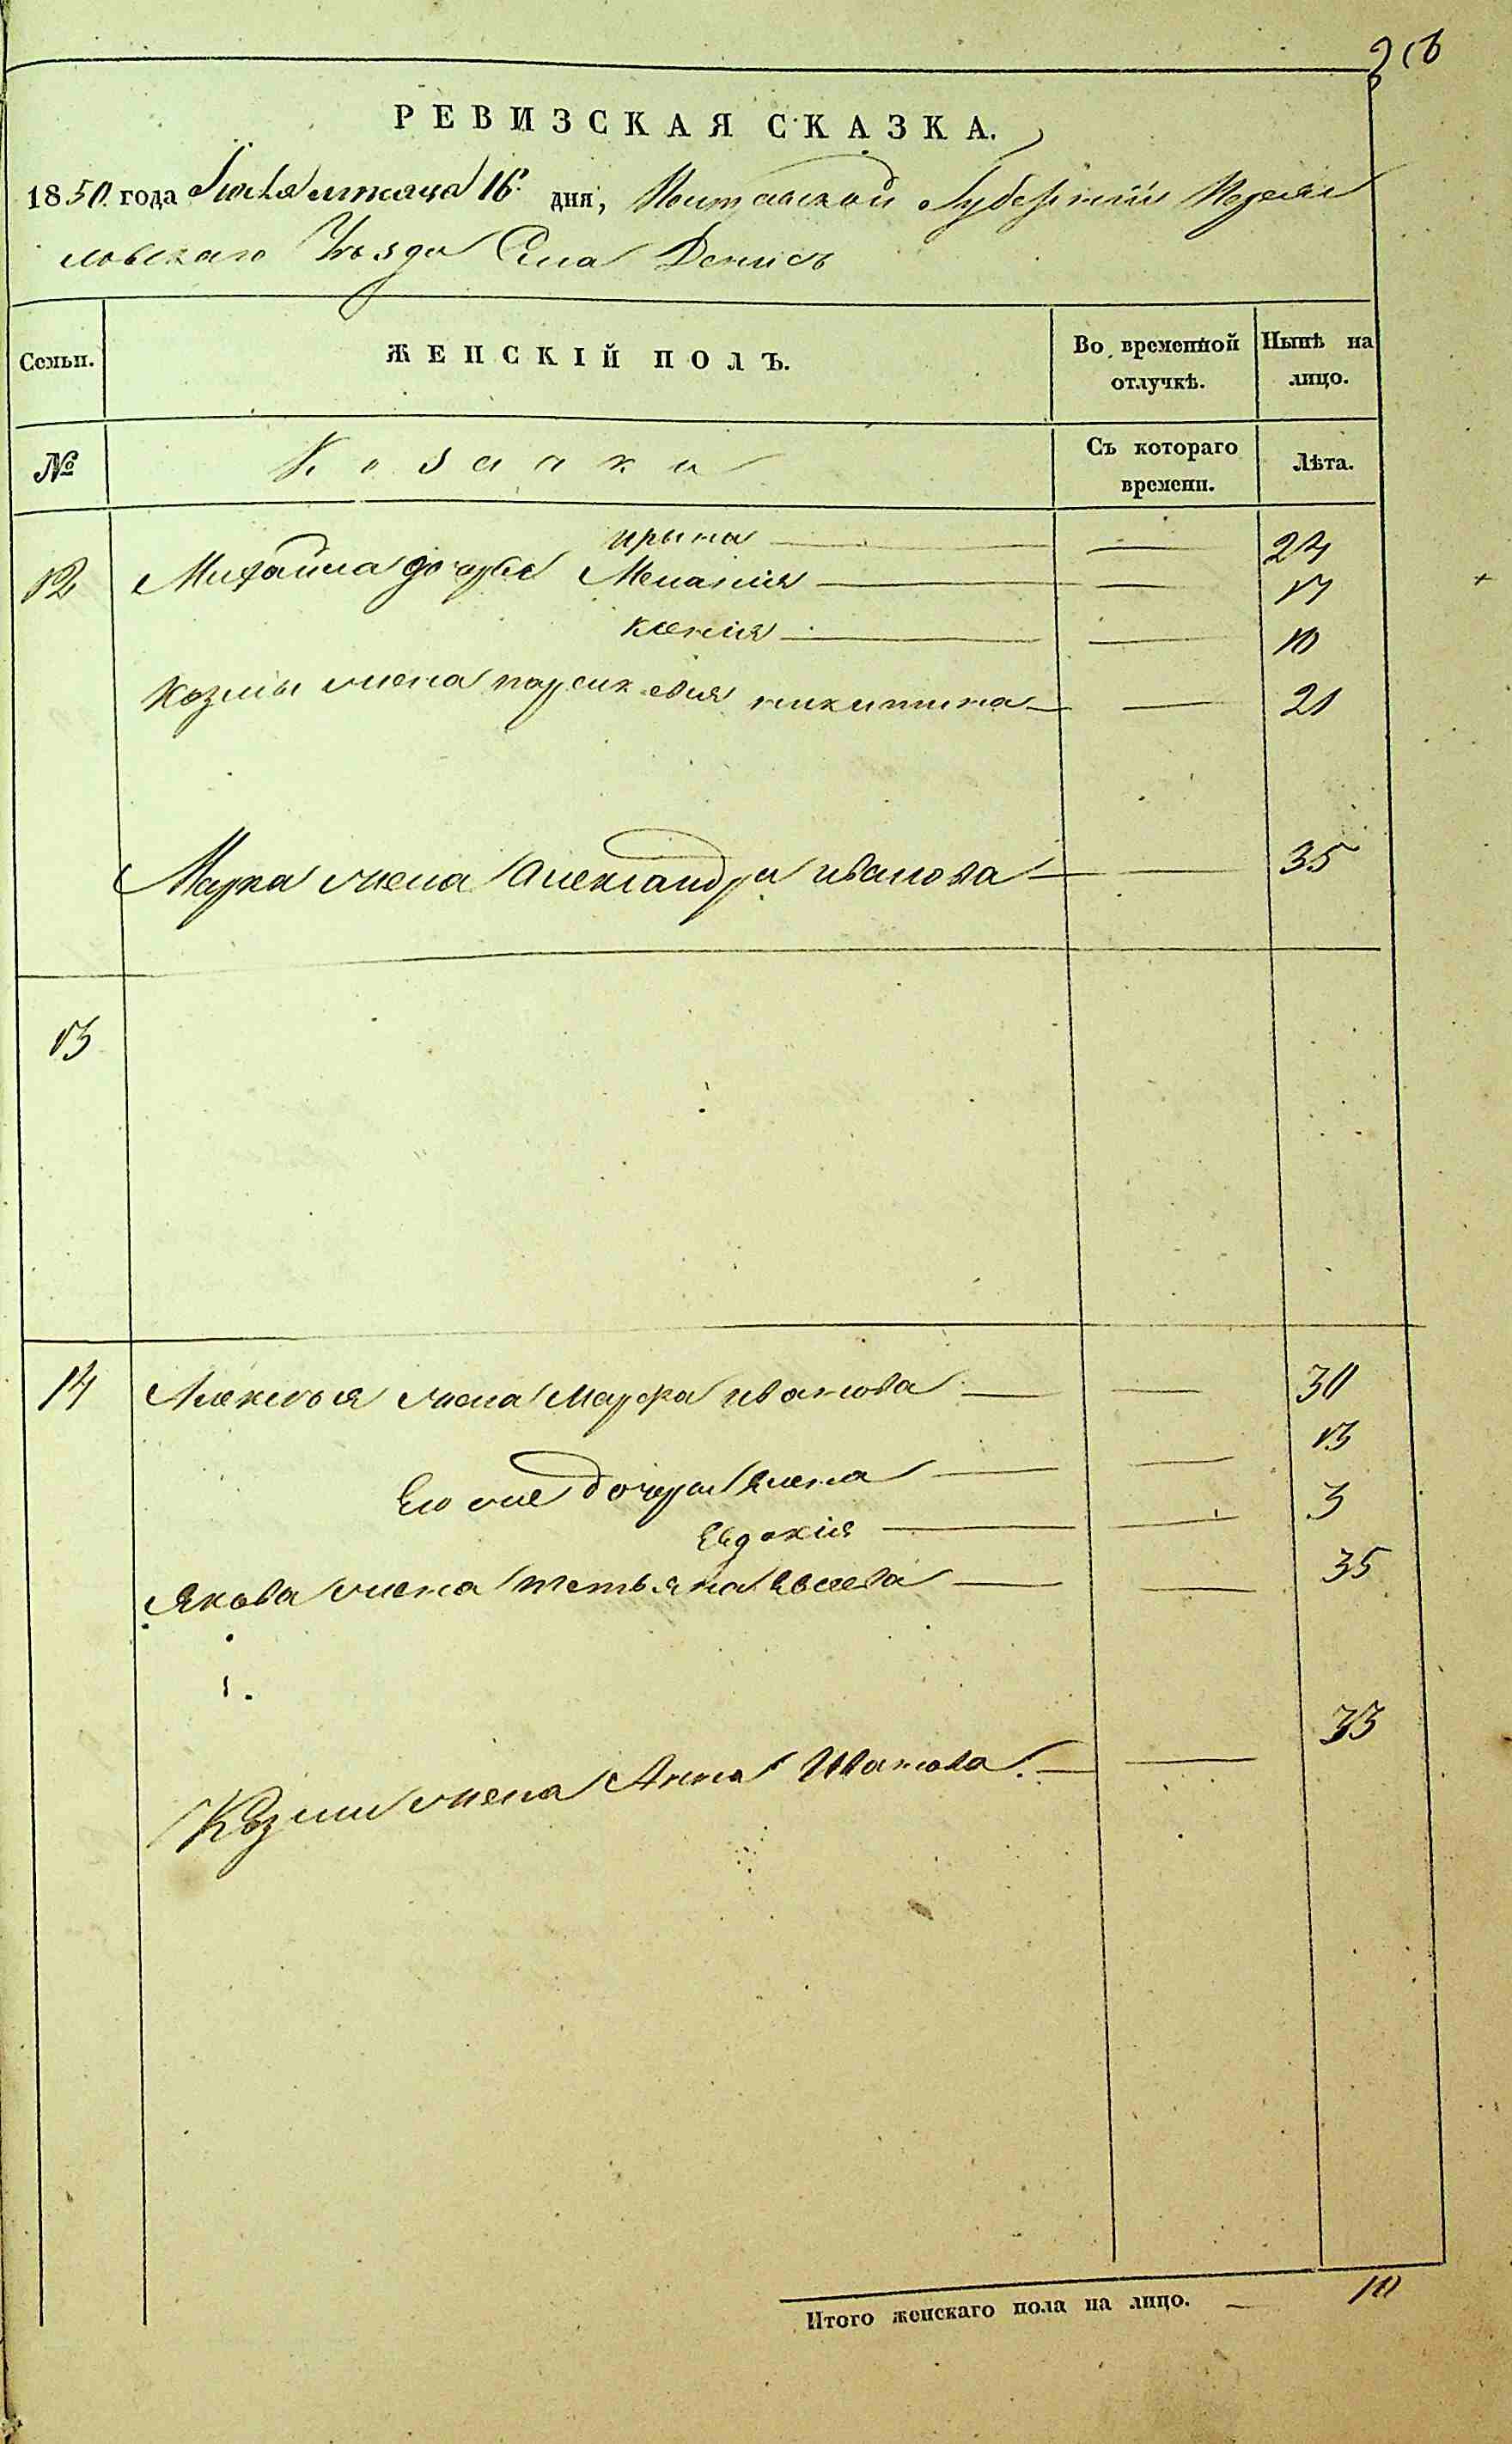 РЕВИЗСКАЯ СКАЗКА.
1850. года Июня месяца 16. дня, Полтавской Губернии Переяс
ловскаго Уезда Села Денисъ
Семьи. ЖЕНСКІЙ ПОЛЪ. Во временной отлучкѣ. Нынѣ на лицо.
№ Козаки Съ котораго времени. Лѣта.
ирына — — 24
12 Михайла дочери Мелания — — 17
ксения — — 10
Козмы жена параскевия никитина — — 21
Марка жена Александра иванова — — 35
13
14 Алексѣя жена Марфа иванова — — 30
Его же дочери Елена — — 13
Евдокія — — 3
Якова жена татьяна — — 35
Козми жена Анна Иванова. — — 33
Итого женскаго пола на лицо. — 10